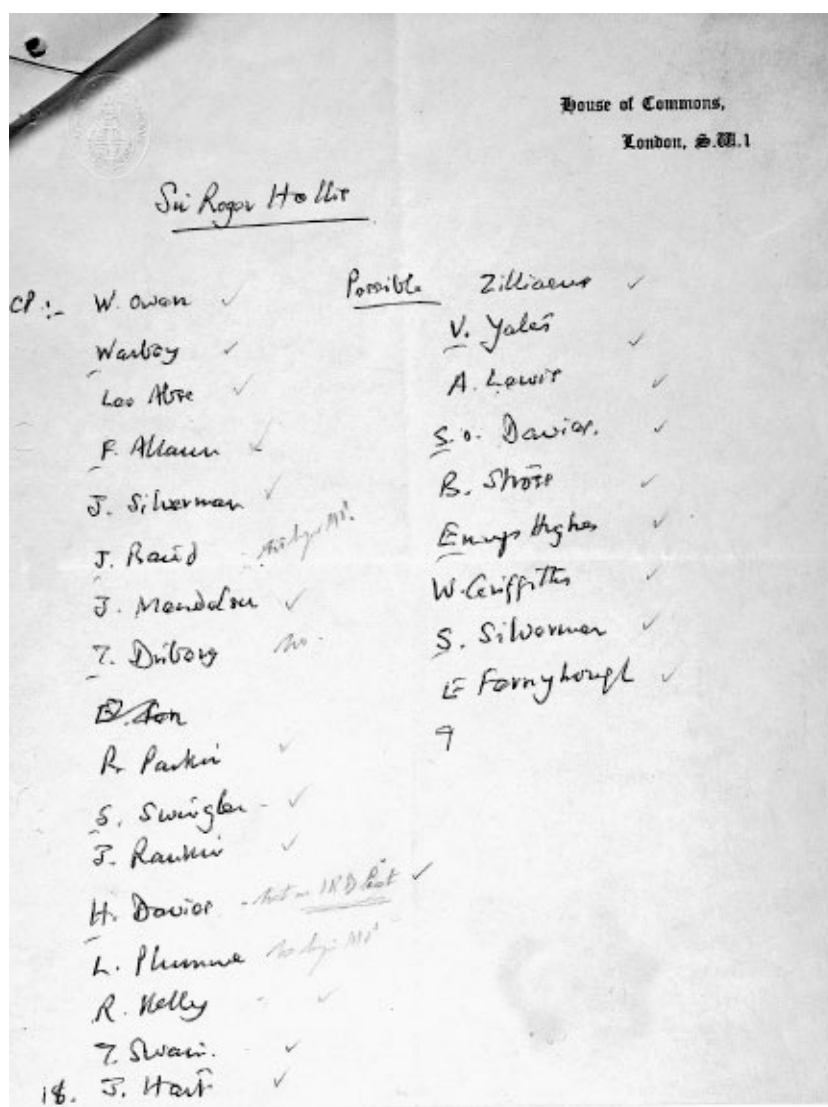 House of Commons,
London, S.W.1
Sir Roger Hollis
CP :- W. Owen ✓
Warbey ✓
Leo Abse ✓
F. Allaun ✓
J. Silverman ✓
J. Baird
J. Mendelson ✓
T. Driberg no.
R. Parkin ✓
S. Swingler - ✓
J. Rankin ✓
H. Davies - not on IRD list ✓
L. Plummer
R. Kelley - ✓
T. Swain. ✓
18. J. Hart ✓
Possible Zilliacus ✓
V. Yates ✓
A. Lewis ✓
S. O. Davies. ✓
B. Stross ✓
Emrys Hughes ✓
W. Griffiths ✓
S. Silverman ✓
E Fernyhough ✓
9